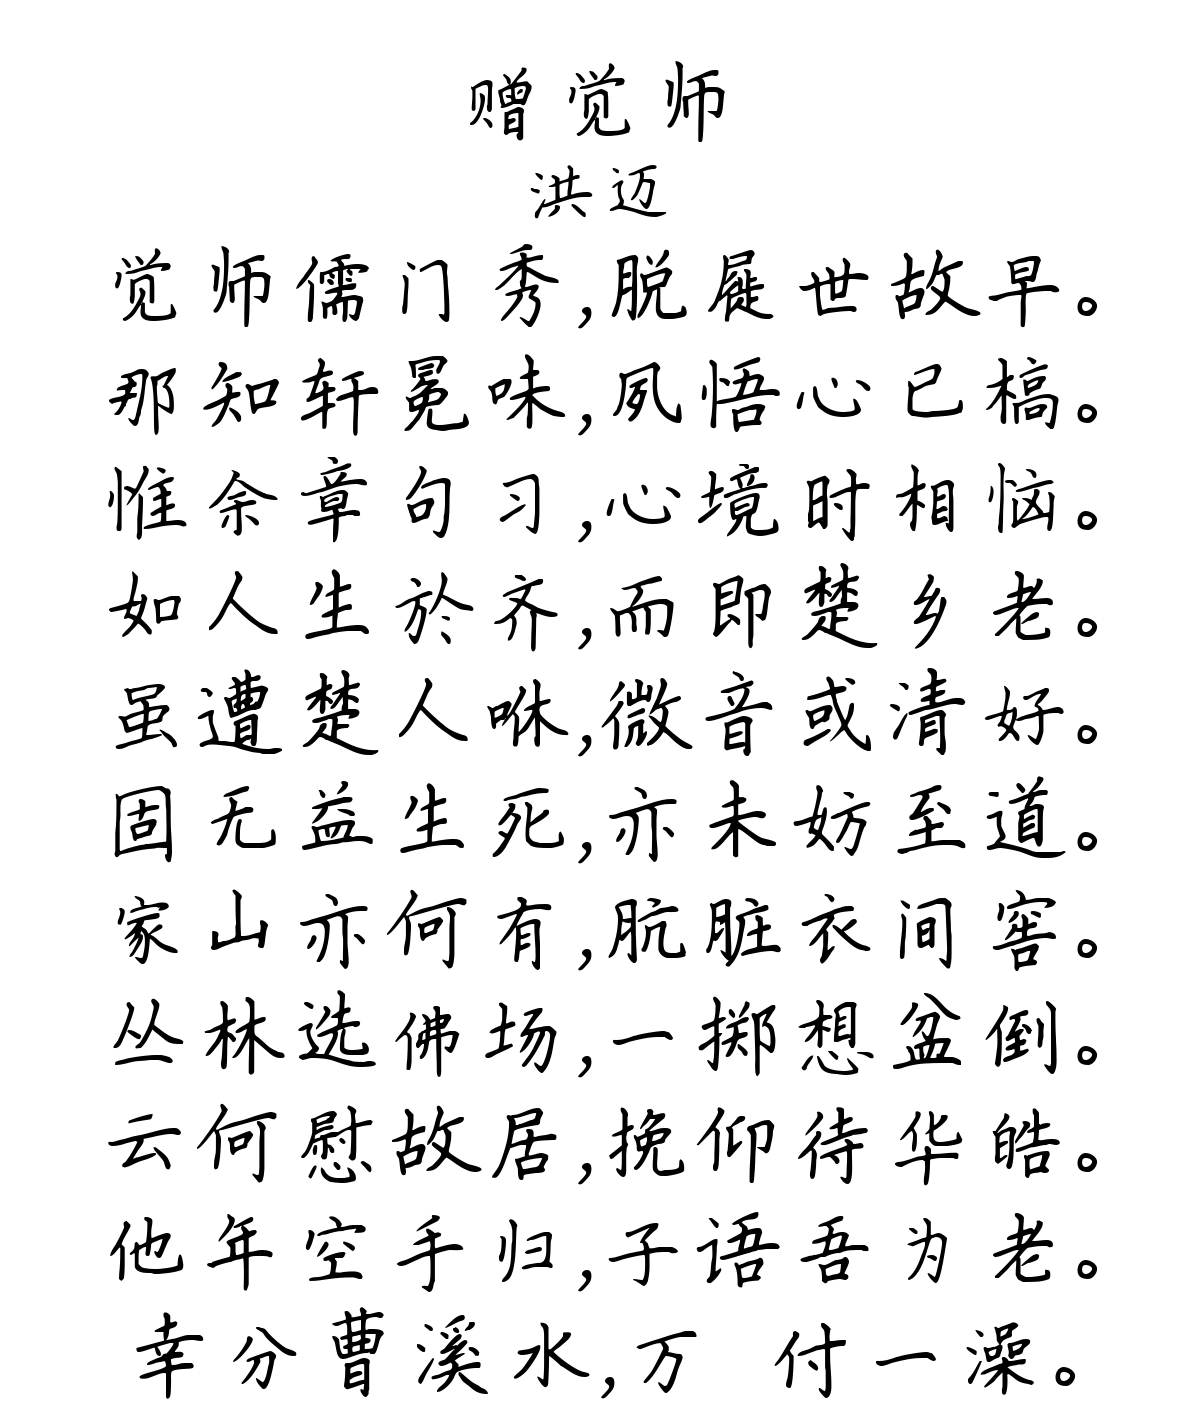 赠觉师
洪迈
觉师儒门秀,脱屣世故早。
那知轩冕味,夙悟心已槁。
惟余章句习,心境时相恼。
如人生於齐,而即楚乡老。
虽遭楚人咻,微音或清好。
固无益生死,亦未妨至道。
家山亦何有,肮脏衣间窖。
丛林选佛场,一掷想盆倒。
云何慰故居,挽仰待华皓。
他年空手归,子语吾为老。
幸分曹溪水,万 付一澡。